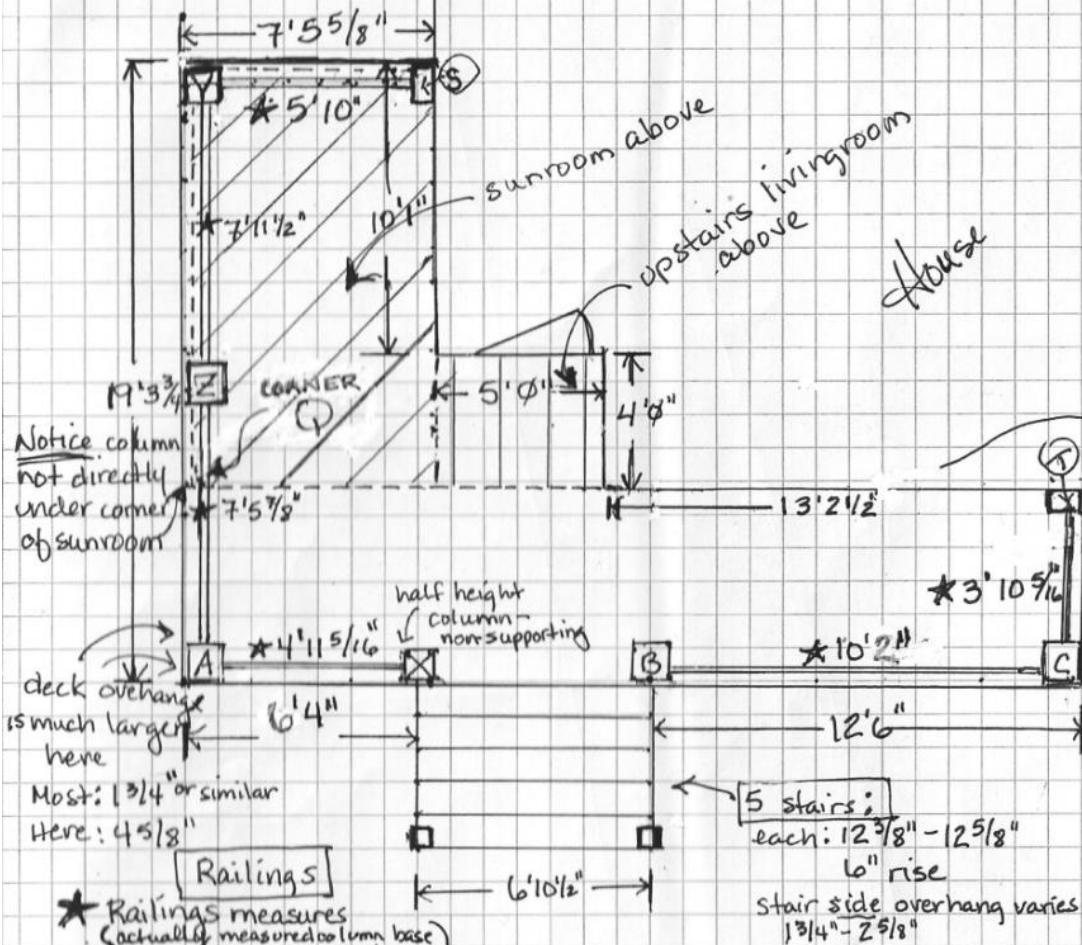 7'5 5/8"
Y
S
★ 5'10"
sunroom above
★ 7'11 1/2"
10'1"
upstairs livingroom
above
House
Z
CORNER
Q
5'0"
4'0"
19'3 3/4
Notice column
not directly
under corner
of sunroom
★ 7'5 7/8"
13'2 1/2"
T
★ 3'10 5/16"
half height
column-
nonsupporting
A
★ 4'11 5/16"
B
★ 10'2"
C
deck ovehange
is much larger
here
6'4"
12'6"
Most: 1 3/4" or similar
Here: 4 5/8"
5 stairs:
each: 12 3/8" - 12 5/8"
6" rise
Stair side overhang varies
1 3/4" - 2 5/8"
Railings
6'10 1/2"
★ Railings measures
(actually measured column base)